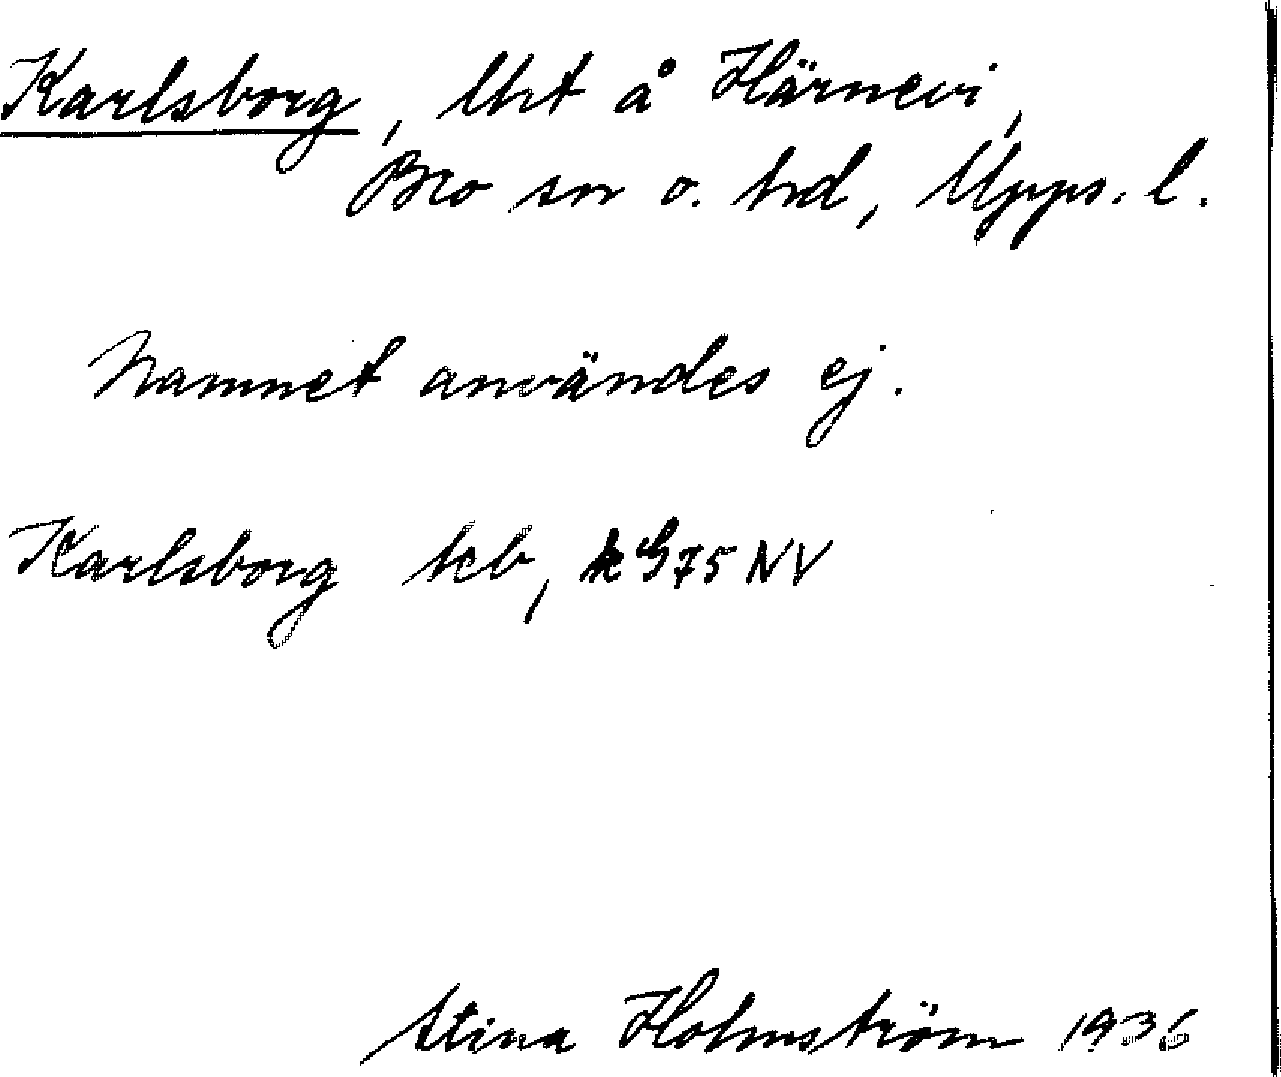 Karlsborg, lht å Härnevi,
Bro sn o. hd, Upps. l.
Namnet användes ej.
Karlsborg 75 NV
Stina Holmström 1936